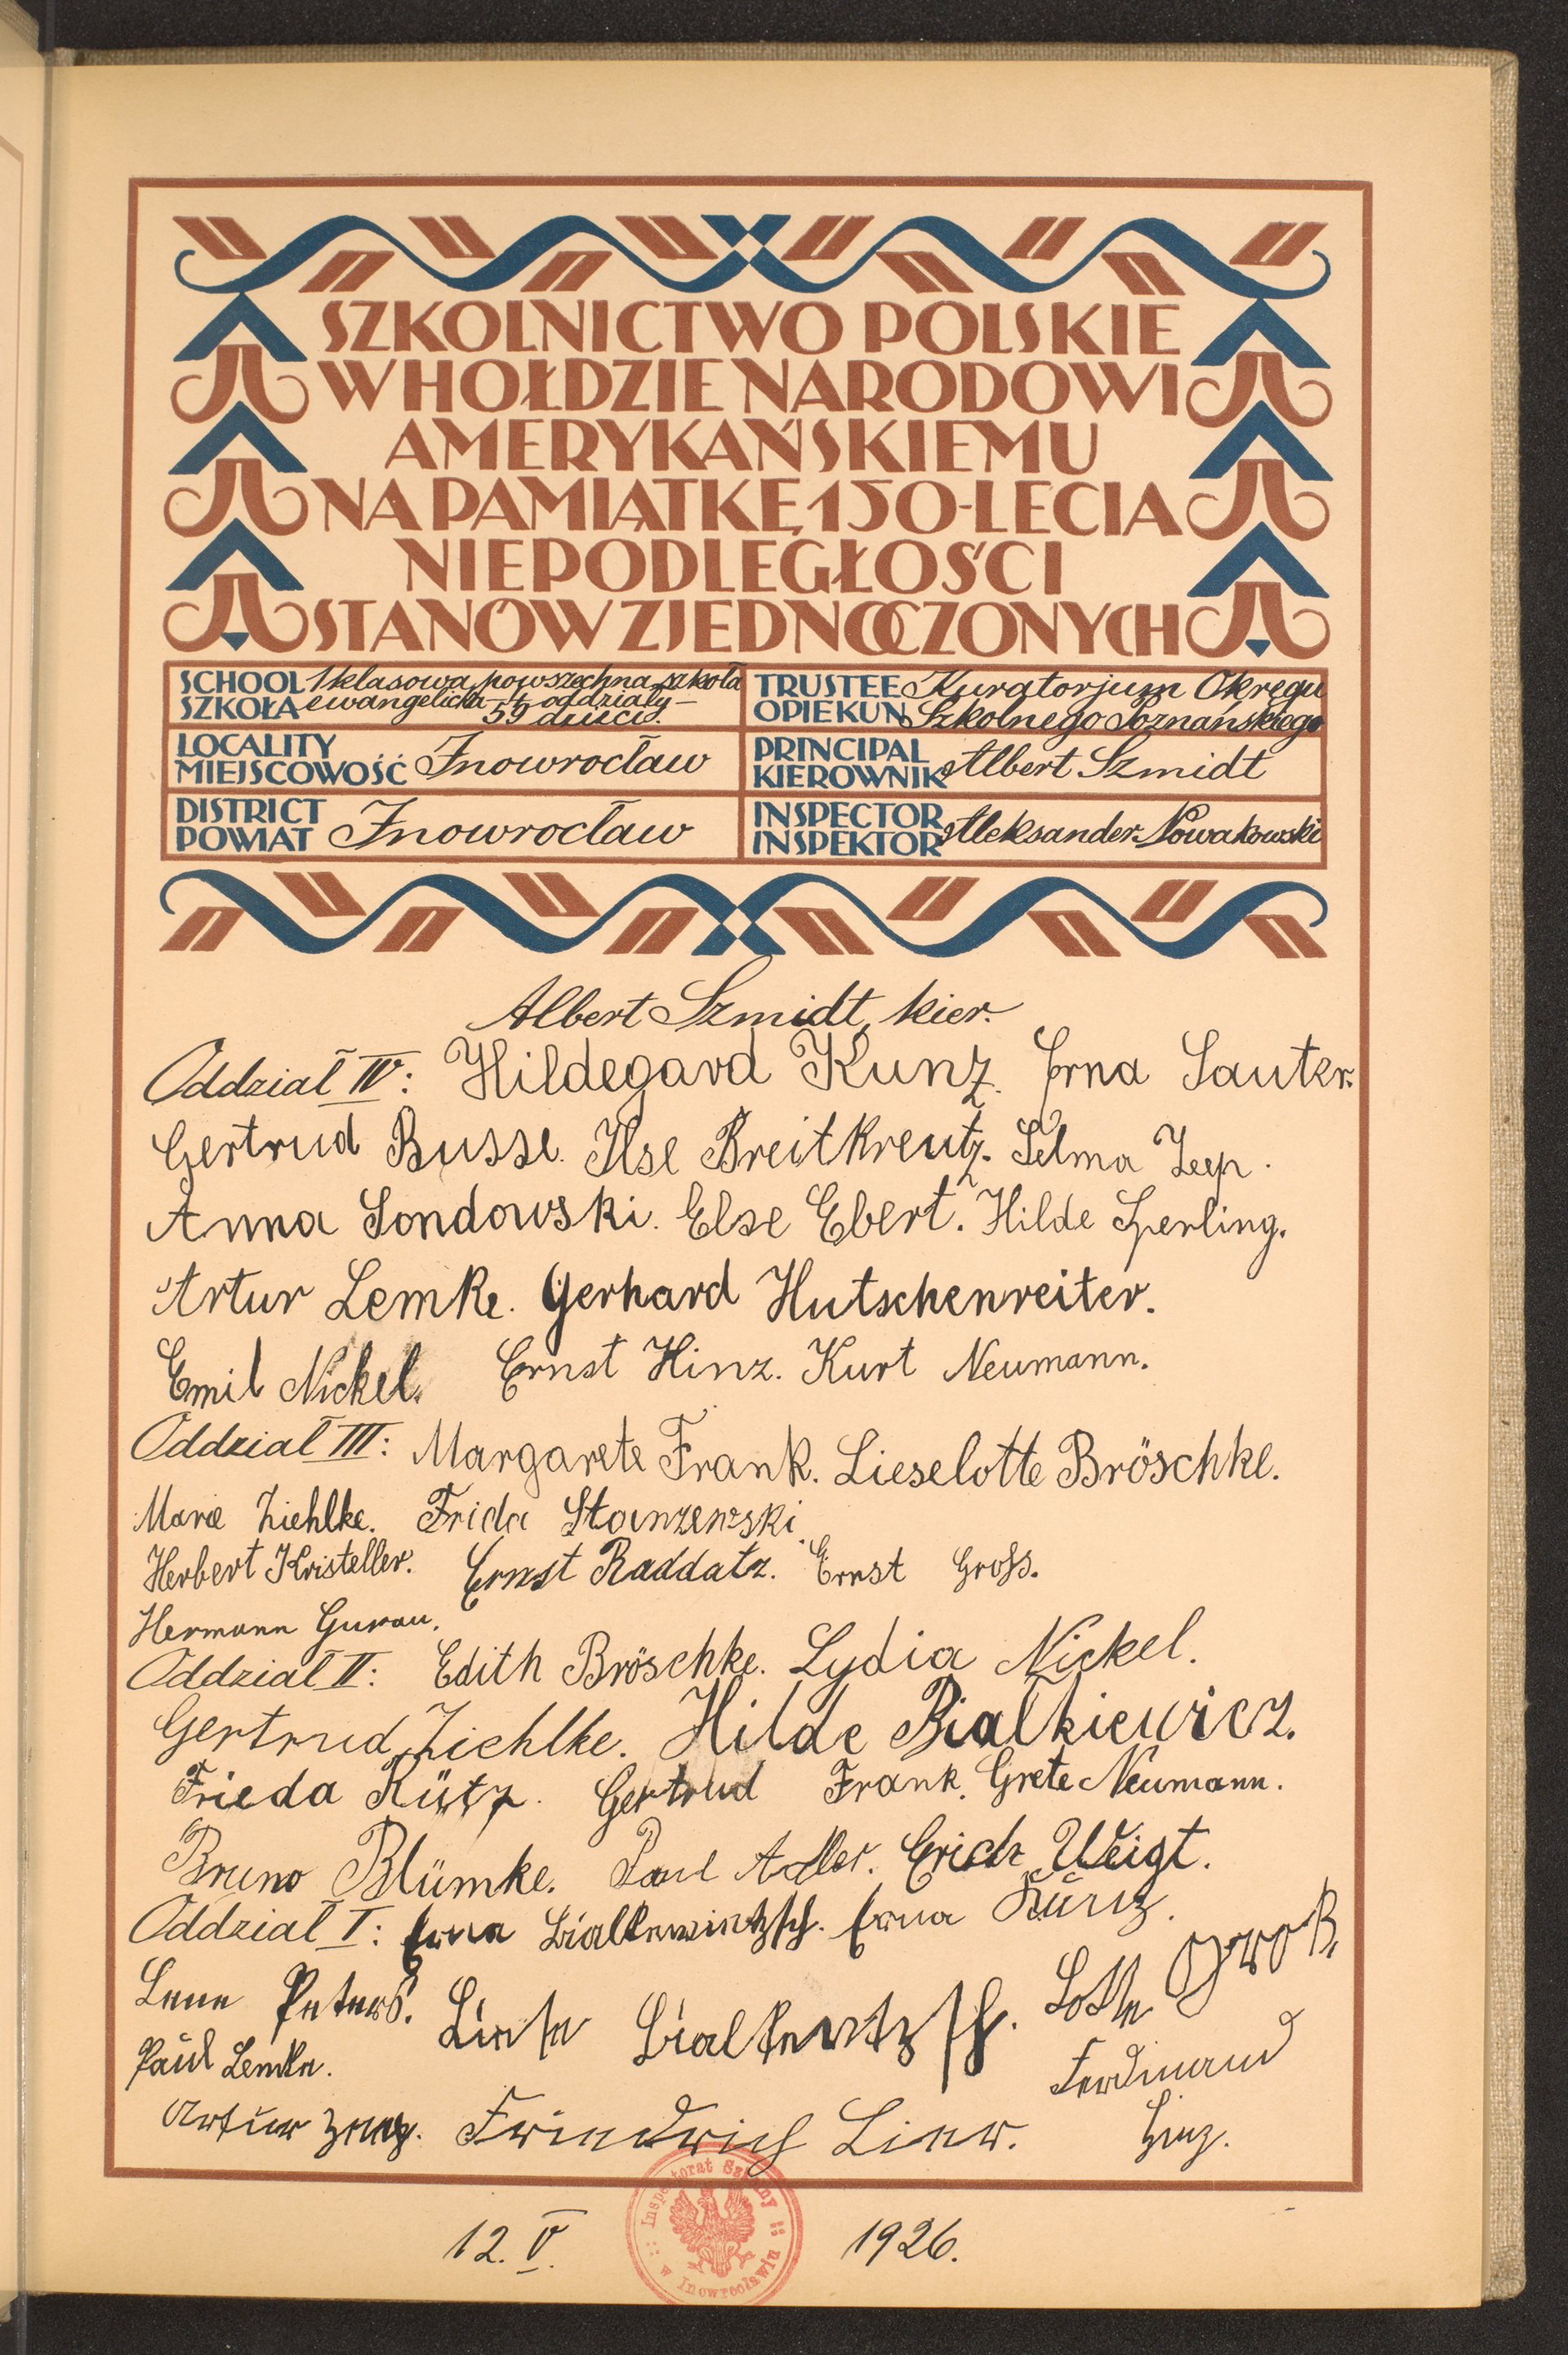 SZKOLNICTWO POLSKIE
W HOŁDZIE NARODOWI
AMERYKAŃSKIEMU
NA PAMIĄTKĘ 150-LECIA
NIEPODLEGŁOŚCI
STANÓW ZJEDNOCZONYCH
SCHOOL 1klasowa powszechna szkoła
SZKOŁA ewangelicka 4 oddziały –
59 dzieci.
TRUSTEE Kuratorjum Okręgu
OPIEKUN Szkolnego Poznańskiego
LOCALITY
MIEJSCOWOŚĆ Inowrocław
PRINCIPAL
KIEROWNIK Albert Szmidt
DISTRICT
POWIAT Inowrocław
INSPECTOR
INSPEKTOR Aleksander Nowakowski
Albert Szmidt, kier.
Oddział IV: Hildegard Kunz. Erna Sauter.
Gertrud Busse. Ilse Breitkreutz. Selma Zeep.
Anna Sondowski. Else Ebert. Hilde Sperling.
Artur Lemke. Gerhard Hutschenreiter.
Emil Nickel. Ernst Hinz. Kurt Neumann.
Oddział III: Margarete Frank. Lieselotte Bröschke.
Marie Ziehlke. Frida Stanzewski.
Herbert Kristeller. Ernst Raddatz. Ernst Groß.
Hermann Gurau.
Oddział II: Edith Bröschke. Lydia Nickel.
Gertrud Ziehlke. Hilde Bialkiewicz.
Frieda Rütz. Gertrud Frank. Grete Neumann.
Bruno Blümke. Paul Adler. Erich Weigt.
Oddział I: Erna Erna Kunz.
Lene Peters. Lotte Groß.
Paul Lemke. Ferdinand
Artur Friedrich Hinz.
Inspektorat Szkolny
w Inowrocławiu
12. V. 1926.